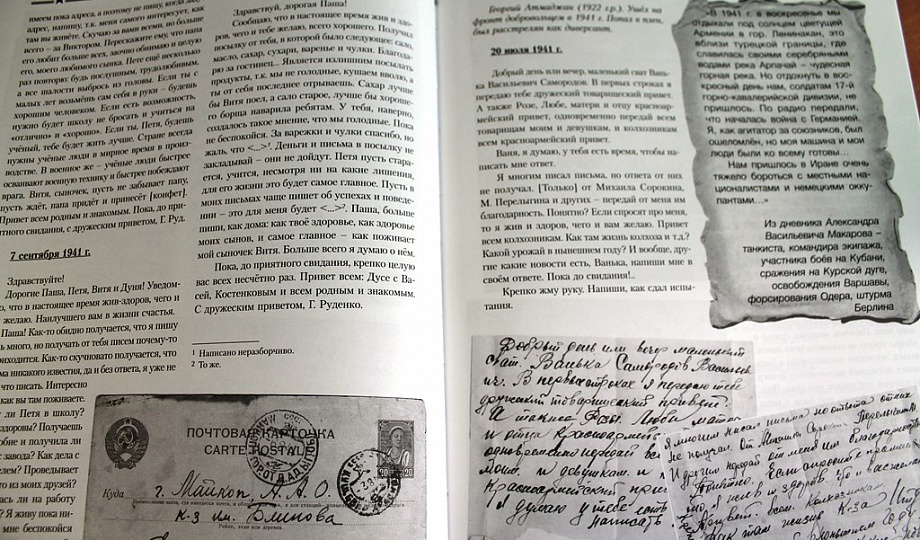 имеем пока адреса, а поэтому не пишу, когда
адрес, напишу, т.к. меня самого интересует, как
там вы живёте. Скучаю за вами всеми, но больше
всего – за Виктором. Перескажите ему, что папа
его любит больше всех, заочно обнимаю и целую
его, моего любимого сынка. Пете ещё несколько
раз повторю: будь послушным, трудолюбивым,
а все шалости выбрось из головы. Если ты с
малых лет возьмёшь себя в руки – будешь
хорошим человеком. Если есть возможность,
нужно будет школу не бросать и учиться на
«отлично» и «хорошо». Если ты, Петя, будешь
учёный, тебе будет жить лучше. Стране всегда
нужны учёные люди и мирное время в произ-
водстве. В военное же – учёные люди быстрее
осваивают военную технику и быстрее побеждают
врага. Витя, сыночек, пусть не забывает папу,
пусть ждёт, папа придёт и принесёт [конфет].
Привет всем родным и знакомым. Пока, до при-
ятного свидания, с дружеским приветом, Г. Руд.
7 сентября 1941 г.
Здравствуйте!
Дорогие Папа, Петя, Витя и Дуня! Уведом-
, что в настоящее время жив-здоров, чего и
желаю. Наилучшего вам в жизни счастья.
Папа! Как-то обидно получается, что я пишу
ь много, но получать от тебя писем почему-то
риходится. Как-то скучновато получается, что
ма никакого известия, да и без ответа, я уже не
что писать. Интересно
как вы там поживаете.
ли Петя в школу?
здоровы? Получаешь
обие и получила ли
с завода? Как дела с
елем? Проведывает
то из моих друзей?
лась ли на работу
? Я живу пока ни-
мне беспокойся
Здравствуй, дорогая Папа!
Сообщаю, что в настоящее время жив и здо-
ров, чего и тебе желаю, всего хорошего. Получил
посылку от тебя, в которой было следующее: сало,
масло, сахар, сухари, варенье и чулки. Благода-
рю за гостинец... Является излишним посылать
продукты, т.к. мы не голодные, кушаем вволю, а
ты от себя последнее отрываешь. Сахар лучше
бы Витя поел, а сало старое, лучше бы хороше-
го борща наварила ребятам. У тебя, наверно,
создалось такое мнение, что мы голодные. Пока
не беспокойся. За варежки и чулки спасибо, но
жаль, что <...>¹. Деньги и письма в посылку не
закладывай – они не дойдут. Петя пусть стара-
ется, учится, несмотря ни на какие лишения,
для его жизни это будет самое главное. Пусть в
моих письмах чаще пишет об успехах и поведе-
нии – это для меня будет <...>². Папа, больше
пиши, как дома: как твоё здоровье, как здоровье
моих сынов, и самое главное – как поживает
мой сыночек Витя. Больше всего я думаю о нём.
Пока, до приятного свидания, крепко целую
вас всех несчётно раз. Привет всем: Дусе с Ва-
сей, Костенковым и всем родным и знакомым.
С дружеским приветом, Г. Руденко.
¹ Написано неразборчиво.
² То же.
ПОЧТОВАЯ КАРТОЧКА
CARTE POSTALE
20 20
Куда г. Майкоп, А. А. О.
к-з им. Блинова
Георгий Атмаджан (1922 г.р.). Ушёл на
фронт добровольцем в 1941 г. Попал в плен,
был расстрелян как диверсант.
20 июля 1941 г.
Добрый день или вечер, маленький сват, Вань-
ка Васильевич Самородов. В первых строках я
передаю тебе дружеский товарищеский привет.
А также Розе, Любе, матери и отцу красноар-
мейский привет, одновременно передай всем
товарищам моим и девушкам, и колхозникам
всем красноармейский привет.
Ваня, я думаю, у тебя есть время, чтобы на-
писать мне ответ.
Я многим писал письма, но ответа от них
не получал. [Только] от Михаила Сорокина,
М. Перелыгина и других – передай от меня им
благодарность. Понятно? Если спросят про меня,
то я жив и здоров, чего и вам желаю. Привет
всем колхозникам. Как там жизнь колхоза и т.д.?
Какой урожай в нынешнем году? И вообще, дру-
гие какие новости есть, Ванька, напиши мне в
своём ответе. Пока до свидания!..
Крепко жму руку. Напиши, как сдал испы-
тания.
«В 1941 г. в воскресенье мы
отдыхали под солнцем цветущей
Армении в гор. Ленинакан, это
вблизи турецкой границы, где
славилась своими серебряными
водами река Арпачай – чудесная
горная река. Но отдохнуть в вос-
кресный день нам, солдатам 17-й
горно-кавалерийской дивизии, не
пришлось. По радио передали,
что началась война с Германией.
Я, как агитатор за союзников, был
ошеломлён, но моя машина и мои
люди были ко всему готовы...
Нам пришлось в Иране очень
тяжело бороться с местными на-
ционалистами и немецкими окку-
пантами...»
Из дневника Александра
Васильевича Макарова –
танкиста, командира экипажа,
участника боёв на Кубани,
сражения на Курской дуге,
освобождения Варшавы,
форсирования Одера, штурма
Берлина
Добрый день или вечер маленький
сват. Ванька Самородов Василье
ич. В первых строках я передаю тебе
дружеский товарищеский привет.
А также Розе, Любе матер
и отцу красноармейс
одновременно передай всем
моим и девушкам и
Красноармейский при
думаю у тебя есть
написать
Я многим писал письма но ответа от них
не получал. От Михаила Сорокин Перелыгина
и других передай от меня им благодарность
Понятно. Если спросят про меня
то я жив и здоров, чего и вам желаю
Привет всем колхозникам
как там жизнь к-за